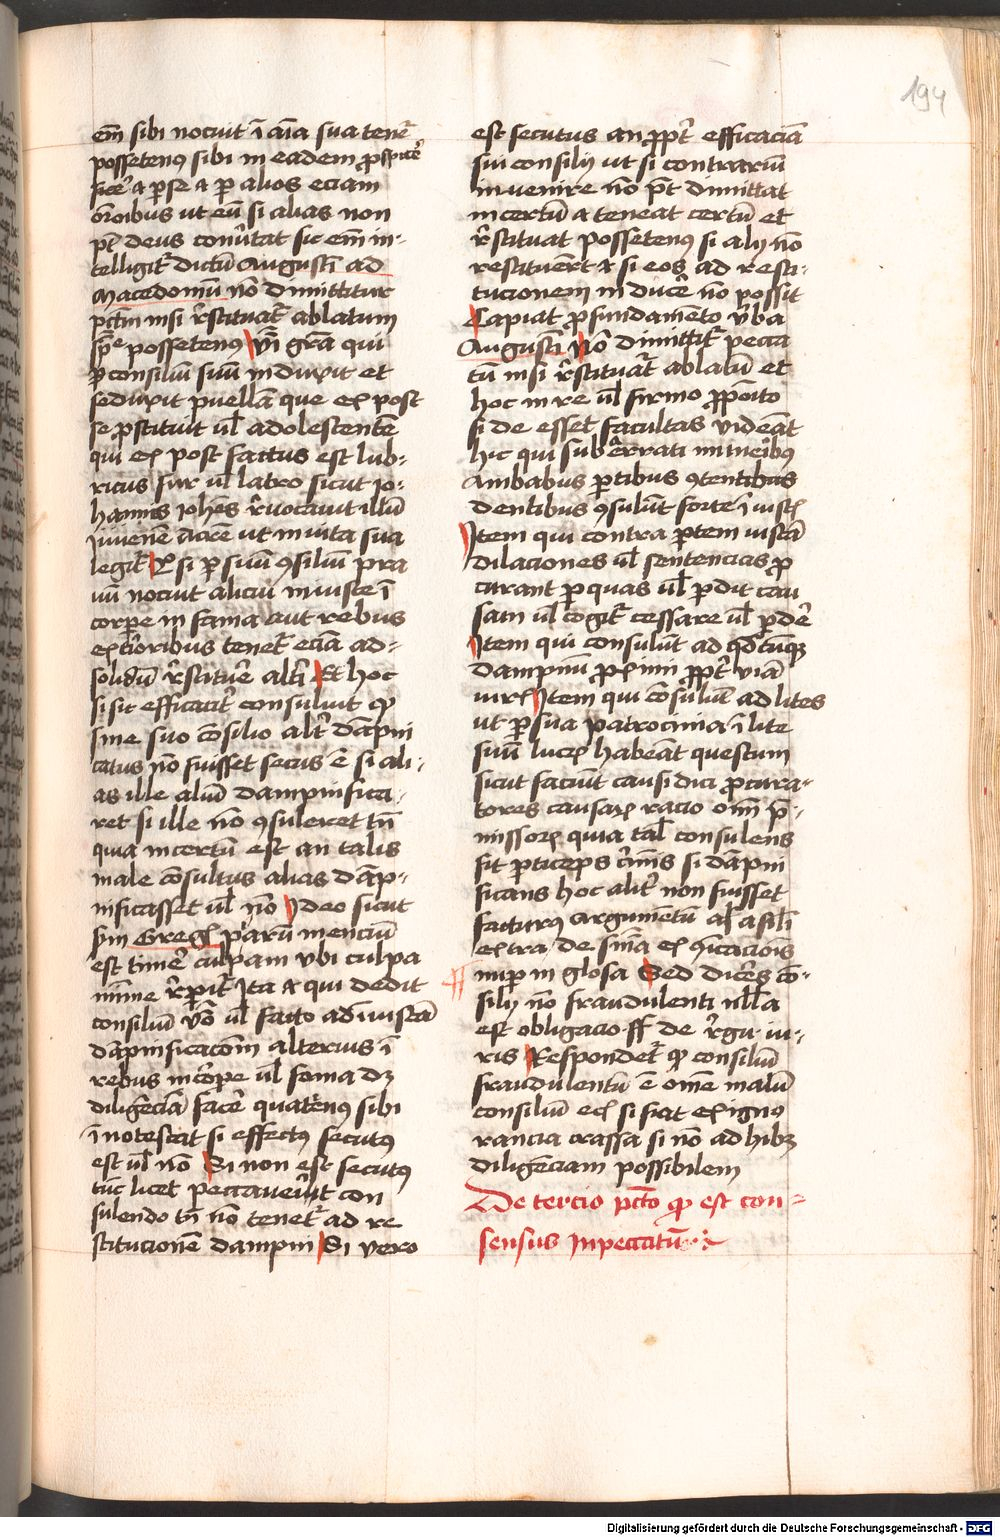 194
em̄ sibi nocuit ī aīa sua tenet᷑
possetenꝰ sibi in eadem ꝓspicer̄
sicut ⁊ ꝑ se ⁊ ꝑ alios eciam
or̄onibus ut eū si alias non
pt̄ deus conūtat sic em̄ in-
telligit᷑ dictū Augustī ad
Macedoniū nō dimittitur
pctm̄ nisi r̄stituat᷑ ablatum
spe possetenꝰ Vn̄ gr̄a qui
ꝑ consiliū suū induxit et
seduxit puellā que ex post
se ꝓstituit ul̄ adolescentē
qui ex post factus est lub-
ricus fur ul̄ latro sicut io-
hannis iohēs r̄uocauit illū
iuuenē
legit᷑ si ꝑ suū ꝯsiliū pra
uū nocuit alicui iniuste ī
corpe in fama aut rebus
exterioribus tenet᷑ eciā ad-
solidū r̄stituer̄ alt̄i Et hoc
si sic efficacit᷑ consuluit ꝙ
sine suo cōsilio alr̄ dāpni
catus nō fuisset secus ē si ali-
as ille aliū dampnifica-
ret si ille nō ꝯsuleret tn̄
quia incertū est an talis
male cōsultus alias dāp-
nificasset ul̄ nō Ideo sicut
Greḡ 
est timer̄ culpam ubi culpa
mīme r̄perit᷑ Ita ⁊ qui dedit
consiliū ūbo ul̄ facto ad īiustā
dāpnificacōm alterius ī
rebus in corpe ul̄ fama dꝫ
diligēciā facer̄ quatenꝰ sibi
īnotescat si effectꝰ secutꝰ
est ul̄ nō Si non est secutꝰ
tūc licet peccauerīt con
sulendo tn̄ nō tenet᷑ ad re
stitucionē dampni Si vero
est secutus an ꝓpt̄ efficaciā
sui consilij ut si contrariū
inuenire nō pt̄ dimittat
incertū ⁊ teneat certū et
r̄stituat possetenꝰ si alij nō
restituer̄t ⁊ si eos ad resti-
tucionem inducer̄ nō possit
Capiat ꝓ fundamēto ūba
Augustī Nō dimittit᷑ pecca
tū nisi r̄stituat᷑ ablatū et
hoc in re ul̄ firmo ꝓpōito
si de esset facultas videāt
hic qui
ambabus ꝑtibus ꝯtentibus
dentibus ꝯsulūt forte īiuste
Item qui contra ꝑtem iustā
dilaciones ul̄ sentencias ꝓ
curant ꝑ quas ul̄ ꝑdit cau
sam ul̄ cogit᷑ cessare ul̄ ꝑder̄
Item qui consulūt ad qdcūqꝫ
dampnū ꝓximi ꝓpt̄ viā
iuris Item qui cōsulūt ad lites
ut ꝑ sua patrocinia ī lite
suū lucrū habeāt questum
sicut faciūt causidici ꝓcura-
tores causaꝝ racio oīm p̄-
missoꝝ quia tal̄ consulens
fit ꝑticeps cimīs si dāpni
ficans hoc alit᷑ non fuisset
facturꝰ argumētū a sil̄i
extra de snīa excoicacōis
nuper in glosa Sed diceres cō-
silij nō fraudulenti nll̄a
est obligacio ff de r̄gu iu-
ris Respondet᷑ ꝙ consiliū
fraudulentū ē ōme malū
consiliū eciā si fiat ex igno
rancia crassa si nō adhibꝫ
diligēciam possibilem
De tercio pcto ꝙ est con-
sensus in peccatū
Digitalisierung gefördert durch die Deutsche Forschungsgemeinschaft - DFG